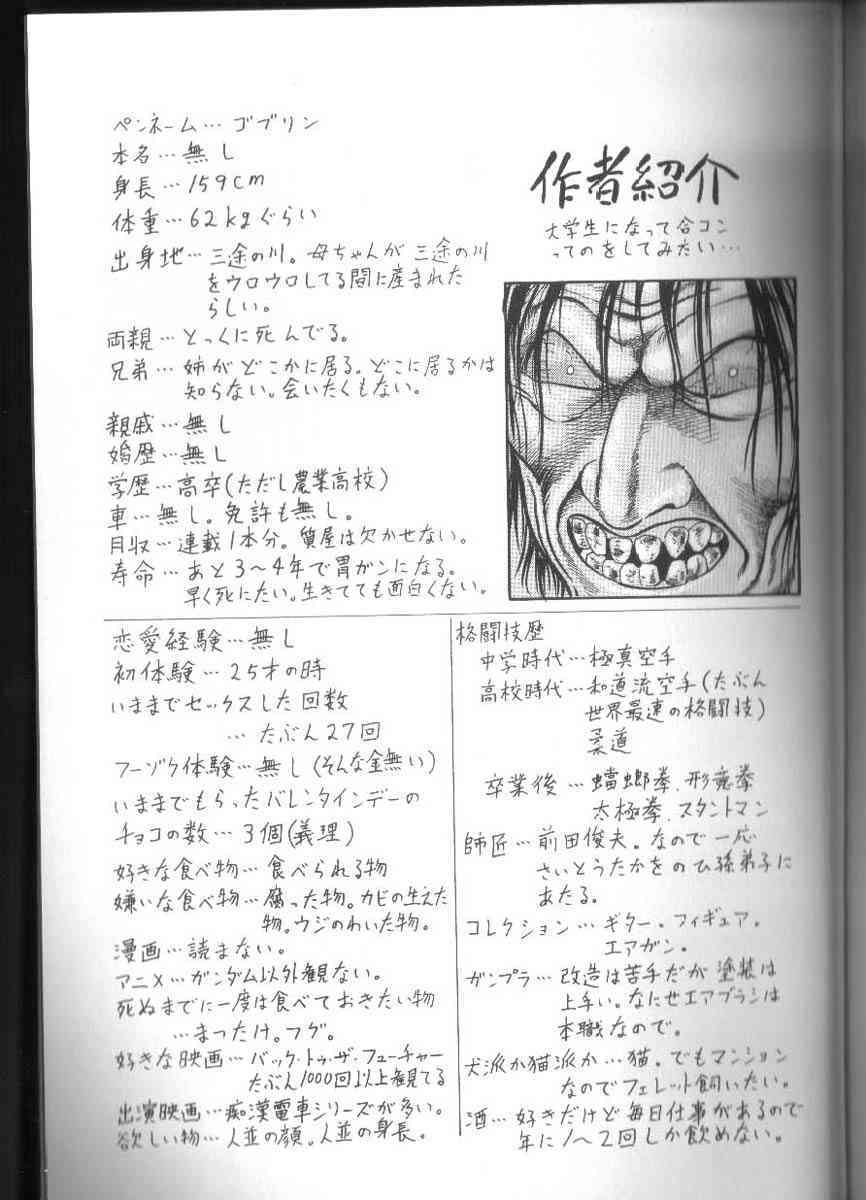 作者紹介
大学生になって合コン
ってのをしてみたい…
ペンネーム…ゴブリン
本名…無し
身長…159cm
体重…62kgぐらい
出身地…三途の川。母ちゃんが三途の川
をウロウロしてる間に産まれた
らしい。
両親…とっくに死んでる。
兄弟…姉がどこかに居る。どこに居るかは
知らない。会いたくもない。
親戚…無し
婚歴…無し
学歴…高卒(ただし農業高校)
車…無し。免許も無し。
月収…連載1本分。質屋は欠かせない。
寿命…あと3〜4年で胃ガンになる。
早く死にたい。生きてても面白くない。
恋愛経験…無し
初体験…25才の時
いままでセックスした回数
…たぶん27回
フーゾク体験…無し(そんな金無い)
いままでもらったバレンタインデーの
チョコの数…3個(義理)
好きな食べ物…食べられる物
嫌いな食べ物…腐った物。カビの生えた
物。ウジのわいた物。
漫画…読まない。
アニメ…ガンダム以外観ない。
死ぬまでに一度は食べておきたい物
…まったけ。フグ。
好きな映画…バック・トゥ・ザ・フューチャー
たぶん1000回以上観てる
出演映画…痴漢電車シリーズが多い。
欲しい物…人並の顔。人並の身長。
格闘技歴
中学時代…極真空手
高校時代…和道流空手(たぶん
世界最速の格闘技)
柔道
卒業後…蟷螂拳、形意拳
太極拳、スタントマン
師匠…前田俊夫。なので一応
さいとうたかをのひ孫弟子に
あたる。
コレクション…ギター・フィギュア。
エアガン。
ガンプラ…改造は苦手だが塗装は
上手い。なにせエアブラシは
本職なので。
犬派か猫派か…猫。でもマンション
なのでフェレット飼いたい。
酒…好きだけど毎日仕事があるので
年に1〜2回しか飲めない。